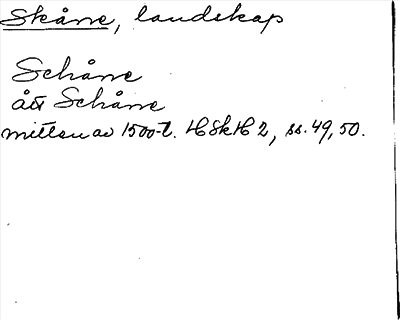 Skåne, landskap
Schåne
åå Schåne
mitten av 1500-t. HSkH 2, ss. 49, 50.